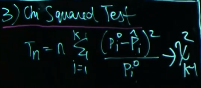 3) Chi Squared Test
Tn = n Σ_{i=1}^{K} (P_i^0 - P̂_i)^2 / P_i^0 → χ^2_{K-1}